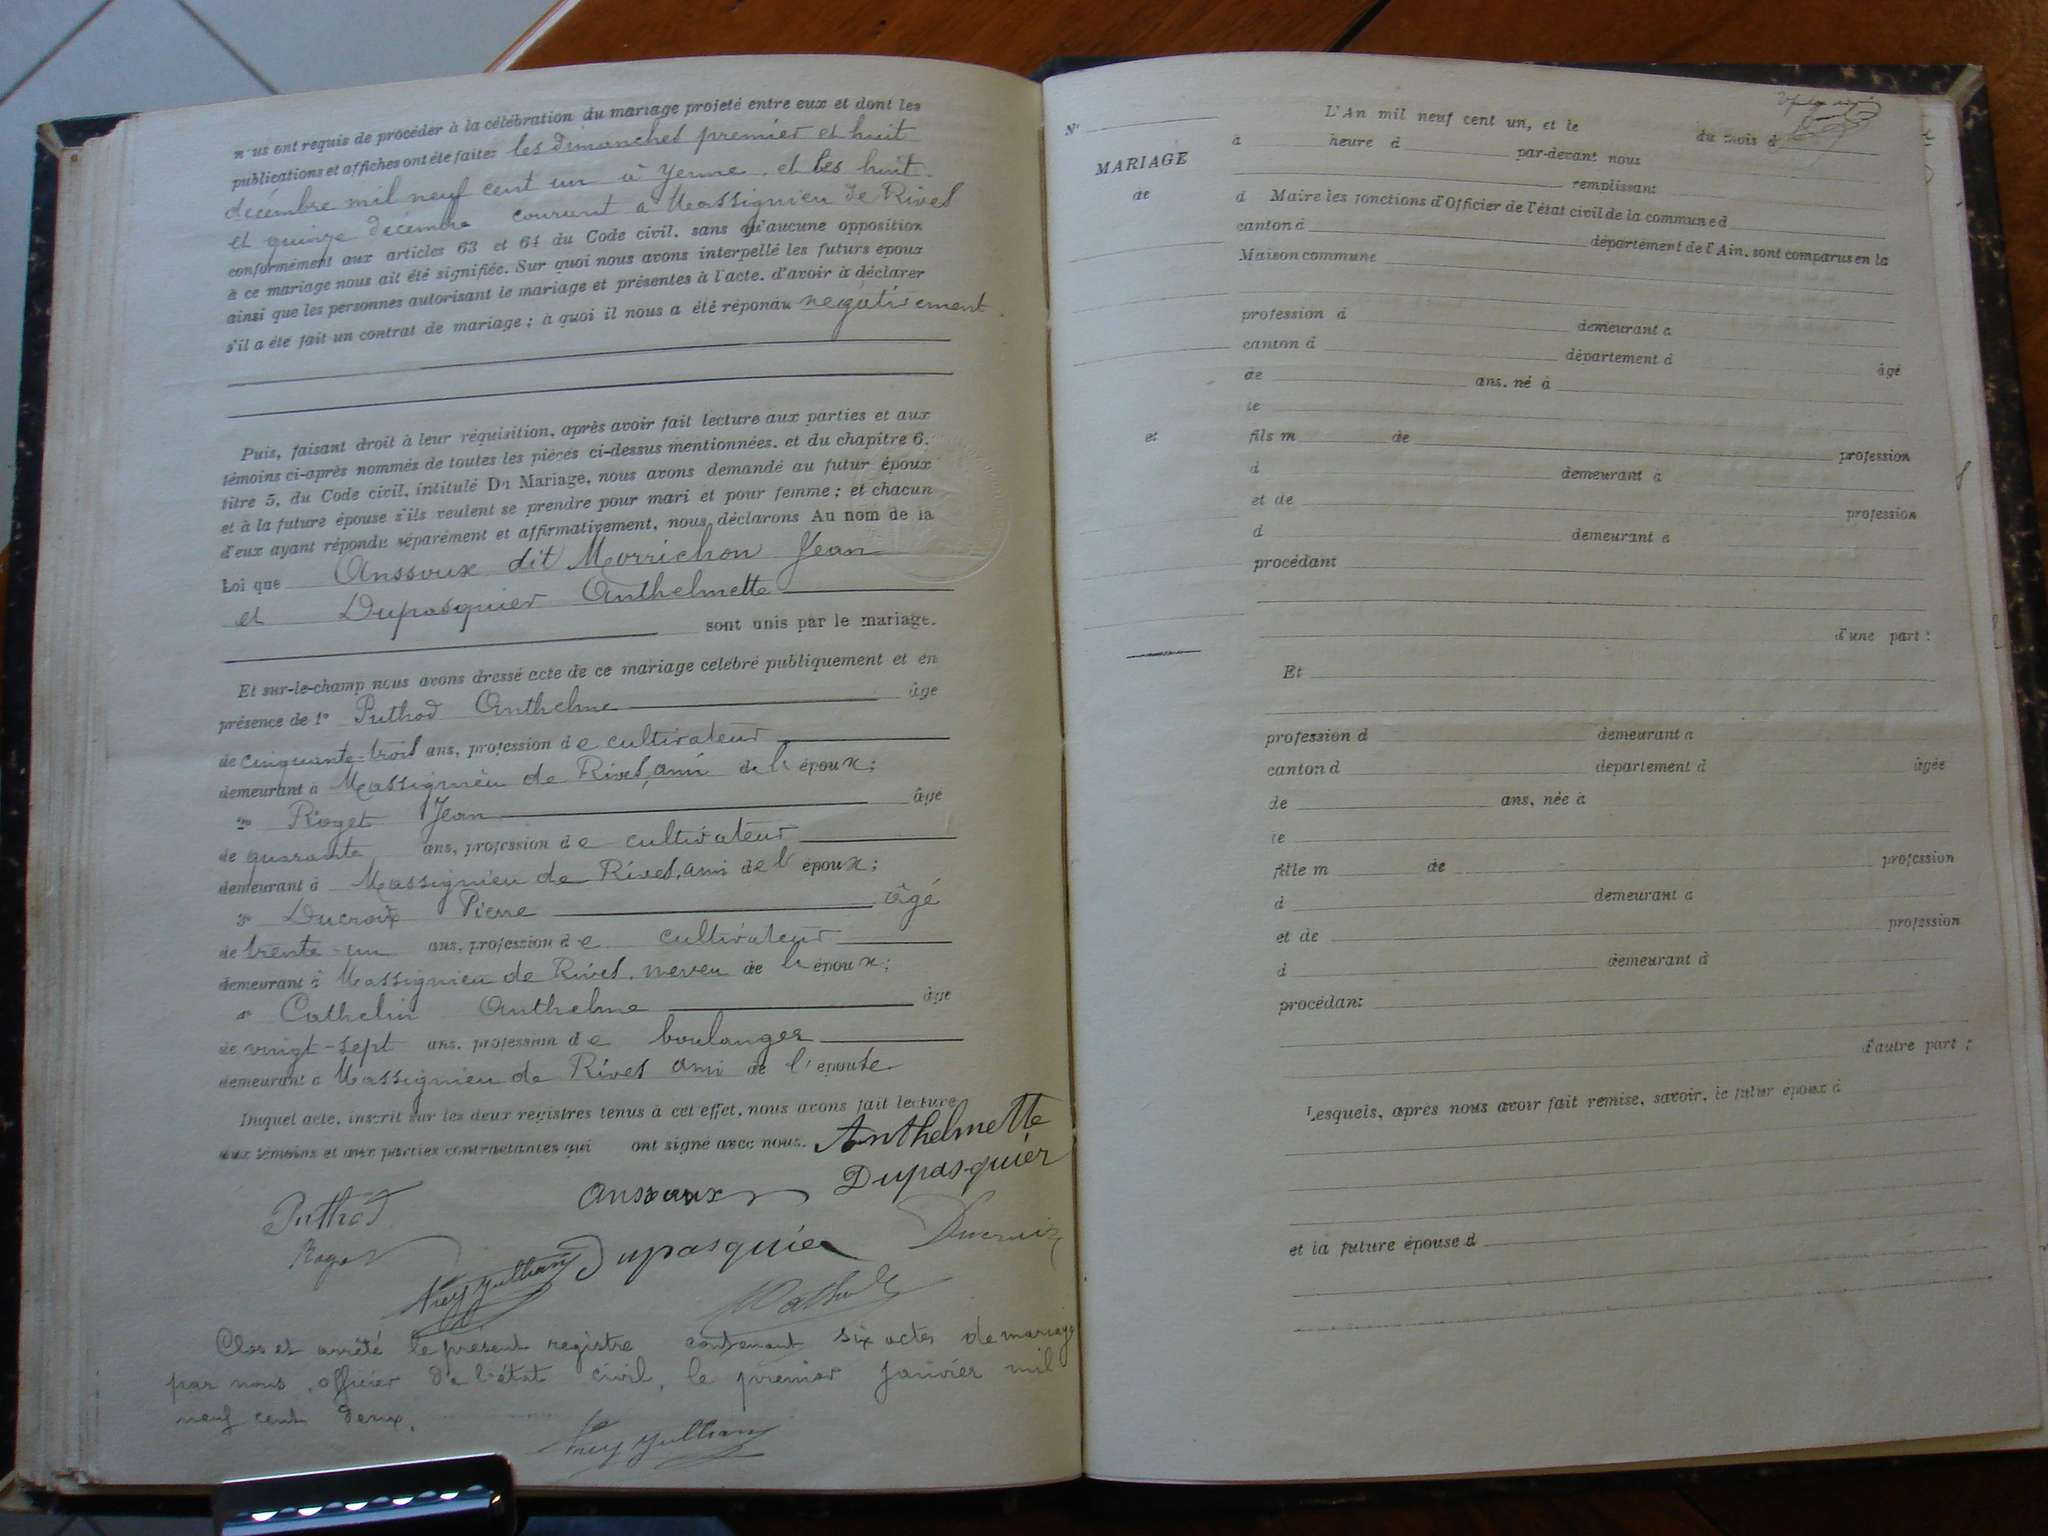 nous ont requis de procéder à la célébration du mariage projeté entre eux et dont les
publications et affiches ont été faites les dimanches premier et huit
décembre mil neuf cent un à Yenne et les huit
et quinze décembre courant a Massignieu de Rives
conformément aux articles 63 et 64 du Code civil. sans qu'aucune opposition
à ce mariage nous ait été signifiée. Sur quoi nous avons interpellé les futurs époux
ainsi que les personnes autorisant le mariage et présentes à l'acte. d'avoir à déclarer
s'il a été fait un contrat de mariage ; à quoi il nous a été répondu negativement.
Puis, faisant droit à leur réquisition, après avoir fait lecture aux parties et aux
témoins ci-après nommés de toutes les pièces ci-dessus mentionnées. et du chapitre 6.
titre 5, du Code civil, intitulé Du Mariage, nous avons demandé au futur époux
et à la future épouse s'ils veulent se prendre pour mari et pour femme ; et chacun
d'eux ayant répondu séparément et affirmativement, nous déclarons Au nom de la
Loi que Anssoux dit Morrichon Jean
et Dupasquier Anthelmette
sont unis par le mariage.
Et sur-le-champ nous avons dressé acte de ce mariage celebré publiquement et en
présence de 1° Puthod Anthelme âgé
de cinquante-trois ans, profession de cultivateur
demeurant à Massignieu de Rives, ami de l'époux ;
2° Roget Jean âgé
de quarante ans, profession de cultivateur
demeurant à Massignieu de Rives, ami de l'époux ;
3° Ducroix Pierre âgé
de trente-un ans, profession de cultivateur
demeurant à Massignieu de Rives, neveu de l'époux ;
4° Cathelin Anthelme âgé
de vingt-sept ans. profession de boulanger
demeurant à Massignieu de Rives ami de l'épouse
Duquel acte, inscrit sur les deux registres tenus à cet effet, nous avons fait lecture
aux témoins et aux parties contractantes qui ont signé avec nous. Anthelmette
Dupasquier
Puthod Anssoux
Roget Dupasquier Ducroix
Clos et arrêté le présent registre contenant six actes de mariage
par nous, officier de l'état civil, le premier janvier mil
neuf cent deux.
N°
MARIAGE
de
et
L'An mil neuf cent un, et le du mois d
à heure d par-devant nous
remplissant
d Maire les fonctions d'Officier de l'état civil de la commune d
canton d département de l'Ain. sont comparus en la
Maison commune
profession d demeurant à
canton d département d âgé
de ans. né à
le
fils m de profession
d demeurant à
et de profession
d demeurant à
procédant
d'une part :
Et
profession d demeurant à
canton d département d âgée
de ans, née à
le
fille m de profession
d demeurant à
et de profession
d demeurant à
procédant
d'autre part ;
Lesquels, après nous avoir fait remise, savoir, le futur époux d
et la future épouse d